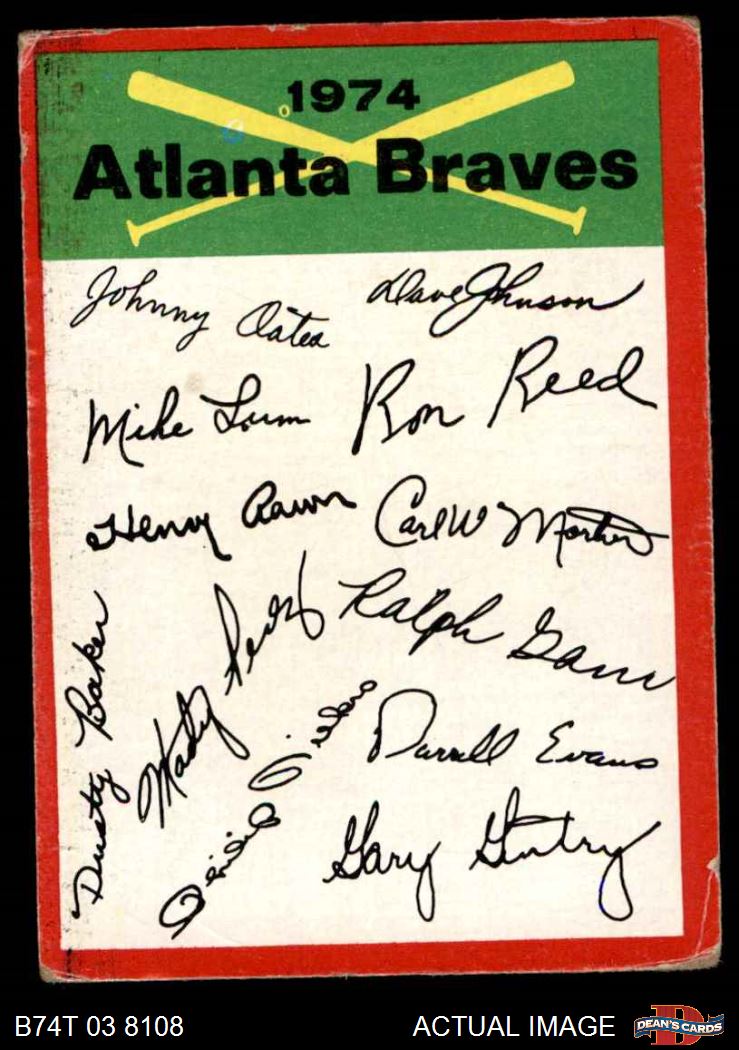 1974
Atlanta Braves
Johnny Oates
Dave Johnson
Mike Lum
Ron Reed
Henry Aaron
Carl W Morton
Dusty Baker
Marty Perez
Ralph Garr
Darrell Evans
Gary Gentry
B74T 03 8108
ACTUAL IMAGE
DEAN'S CARDS